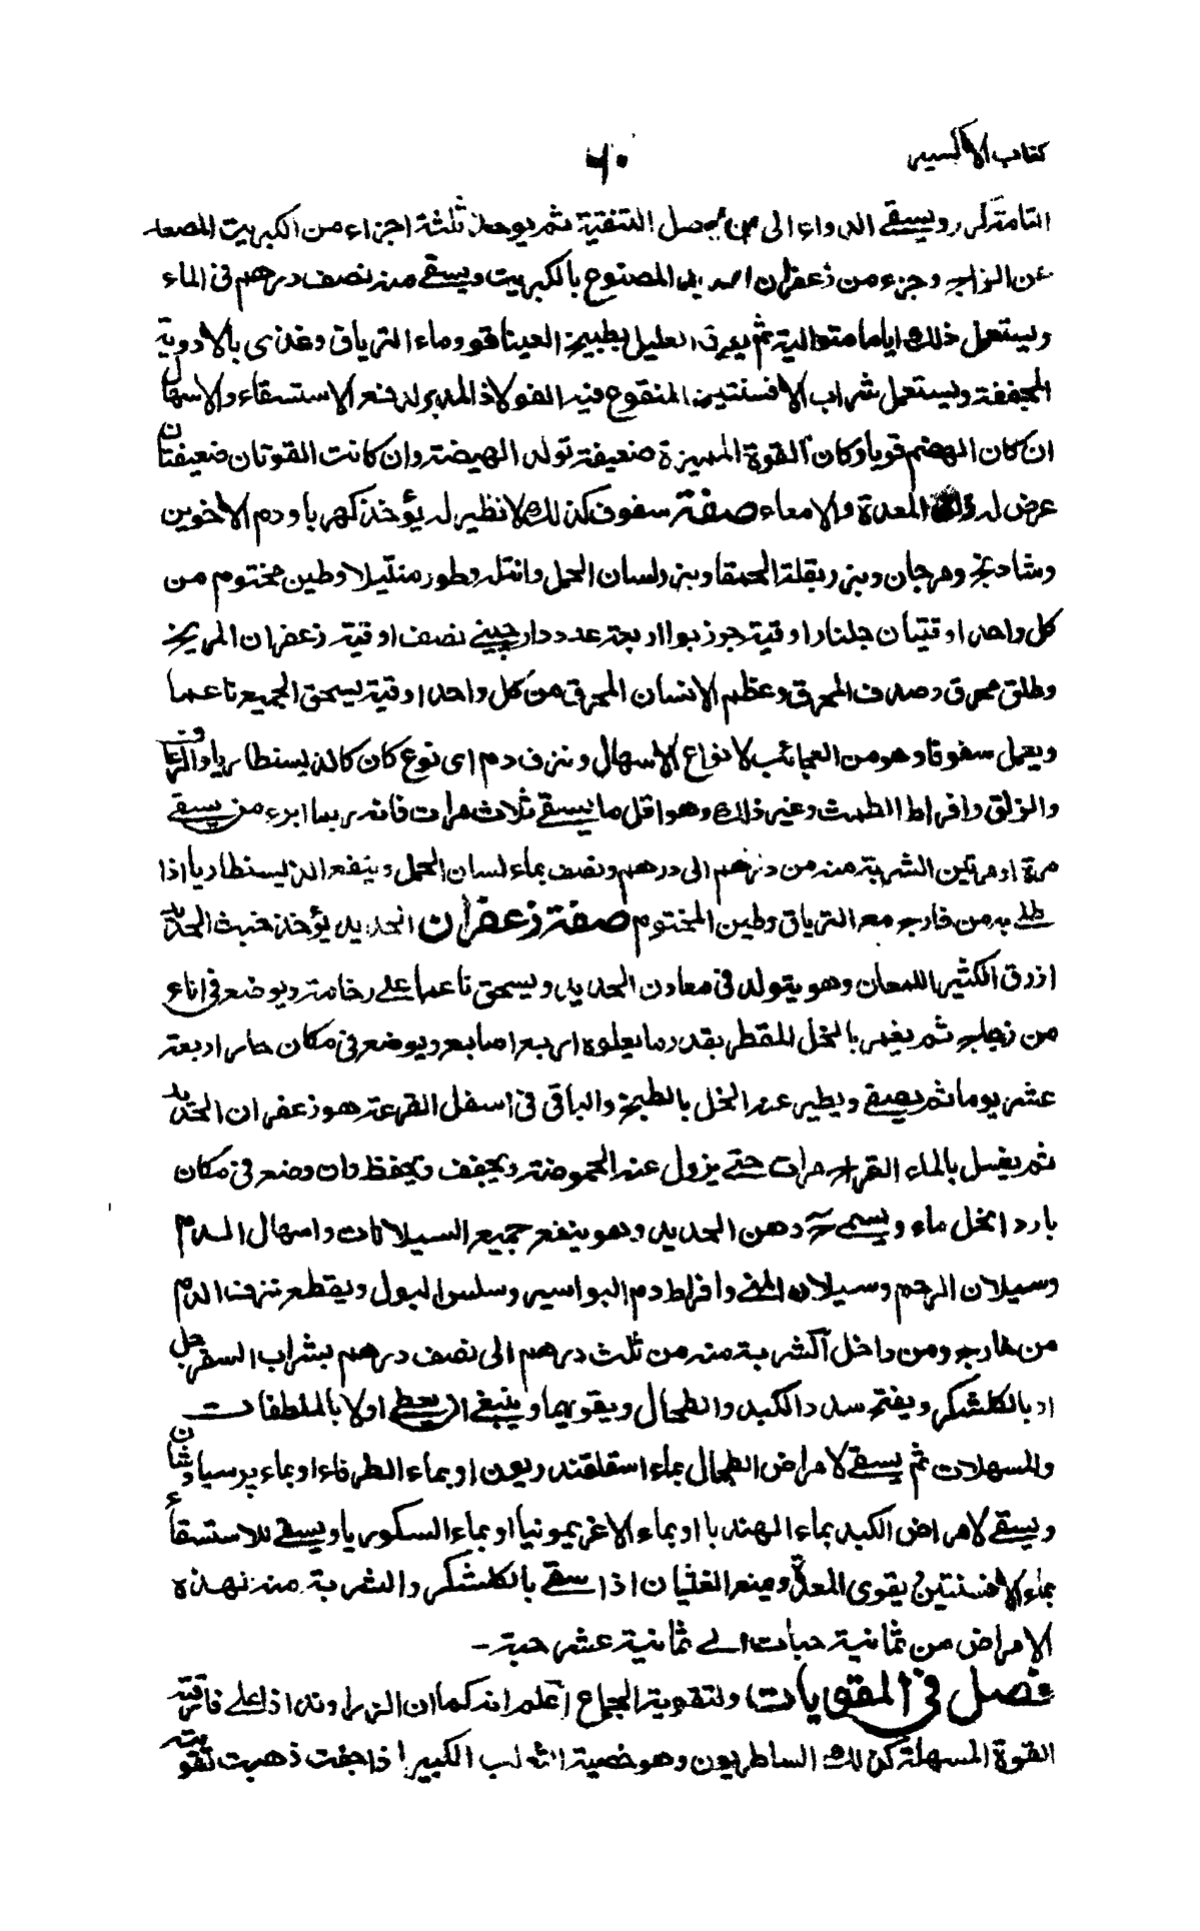 كتاب الاكسير
٦٠
التامة ويسقى الدواء الى ان يحصل التنقية ثم يوخذ ثلثة اجزاء من الكبريت المصعد
عن الزاج وجزء من زعفران الحديد المصنوع بالكبريت ويسقى منه نصف درهم فى الماء
ويستعمل ذلك اياما متوالية ثم يعرق العليل بطبيخ العينافو وماء الترياق وغذى بالادوية
المجففة ويستعمل شراب الافسنتين المنقوع فيه الفولاذ المدبر لدفع الاستسقاء والاسهال
ان كان الهضم قويا وكان القوة المميزة ضعيفة تولد الهيضة وان كانت القوتان ضعيفتان
عرض له المعدة والامعاء صفة سفوف كذلك لا نظير له يؤخذ كهربا ودم الاخوين
وشادنج ومرجان وبزر بقلة الحمقا وبزر لسان الحمل وطين مختوم من
كل واحد اوقيتان جلنار اوقية جوز بوا اربعة عدد دارچينى نصف اوقية زعفران المريخ
وطلق محرق وصدف المحرق وعظم الانسان المحرق من كل واحد اوقية يسحق الجميع ناعما
ويعمل سفوفا وهو من العجائب لانواع الاسهال ونزف دم اى نوع كان كالذيسنطاريا والزعاف
والزلق وافراط الطمث وغير ذلك وهو اقل ما يسقى ثلاث مرات فانه ربما ابرء من يسقى
مرة او مرتين الشربة منه من درهم الى درهم ونصف بماء لسان الحمل وينفع الذيسنطاريا اذا
طلى به من خارج مع الترياق وطين المختوم صفة زعفران الحديد يؤخذ خبث الحديد
ازرق الكثير اللمعان وهو يتولد فى معادن الحديد ويسحق ناعما على رخامة ويوضع فى اناء
من زجاج ثم يغمر بالخل المقطر بقدر ما يعلوه اربع اصابع ويوضع فى مكان حار اربعة
عشر يوما ثم يصفى ويطير عنه الخل بالطبخ والباقى فى اسفل القرعة هو زعفران الحديد
ثم يغسل بالماء القراح مرات حتى يزول عنه الحموضة ويجفف ويحفظ وان وضع فى مكان
بارد انحل ماء ويسمى ح دهن الحديد وهو ينفع جميع السيلانات واسهال الدم
وسيلان الرحم وسيلان المنى وافراط دم البواسير وسلس البول ويقطع نزف الدم
من خارج ومن داخل الشربة منه من ثلث درهم الى نصف درهم بشراب السفرجل
او بالكلشكر ويفتح سدد الكبد والطحال ويقويهما وينبغى ان يعطى اولا بالملطفات
والمسهلات ثم يسقى لامراض الطحال بماء اسقلقندريون او بماء الطرفاء او بماء پرسياوشان
ويسقى لامراض الكبد بماء الهندبا او بماء الاغريمونيا او بماء السكوريا ويسقى للاستسقاء
بماء الافسنتين يقوى المعدة ومنع الغثيان اذا سقى بالكلشكر والشربة منه لهذه
الامراض من ثمانية حبات الى ثمانية عشر حبة -
فصل فى المقويات ولتقوية الجماع اعلم انه كما ان الزراوند اذا على فارقته
القوة المسهلة كذلك الساطريون وهو خصية الثعلب الكبير اذا جفت ذهبت تقويته